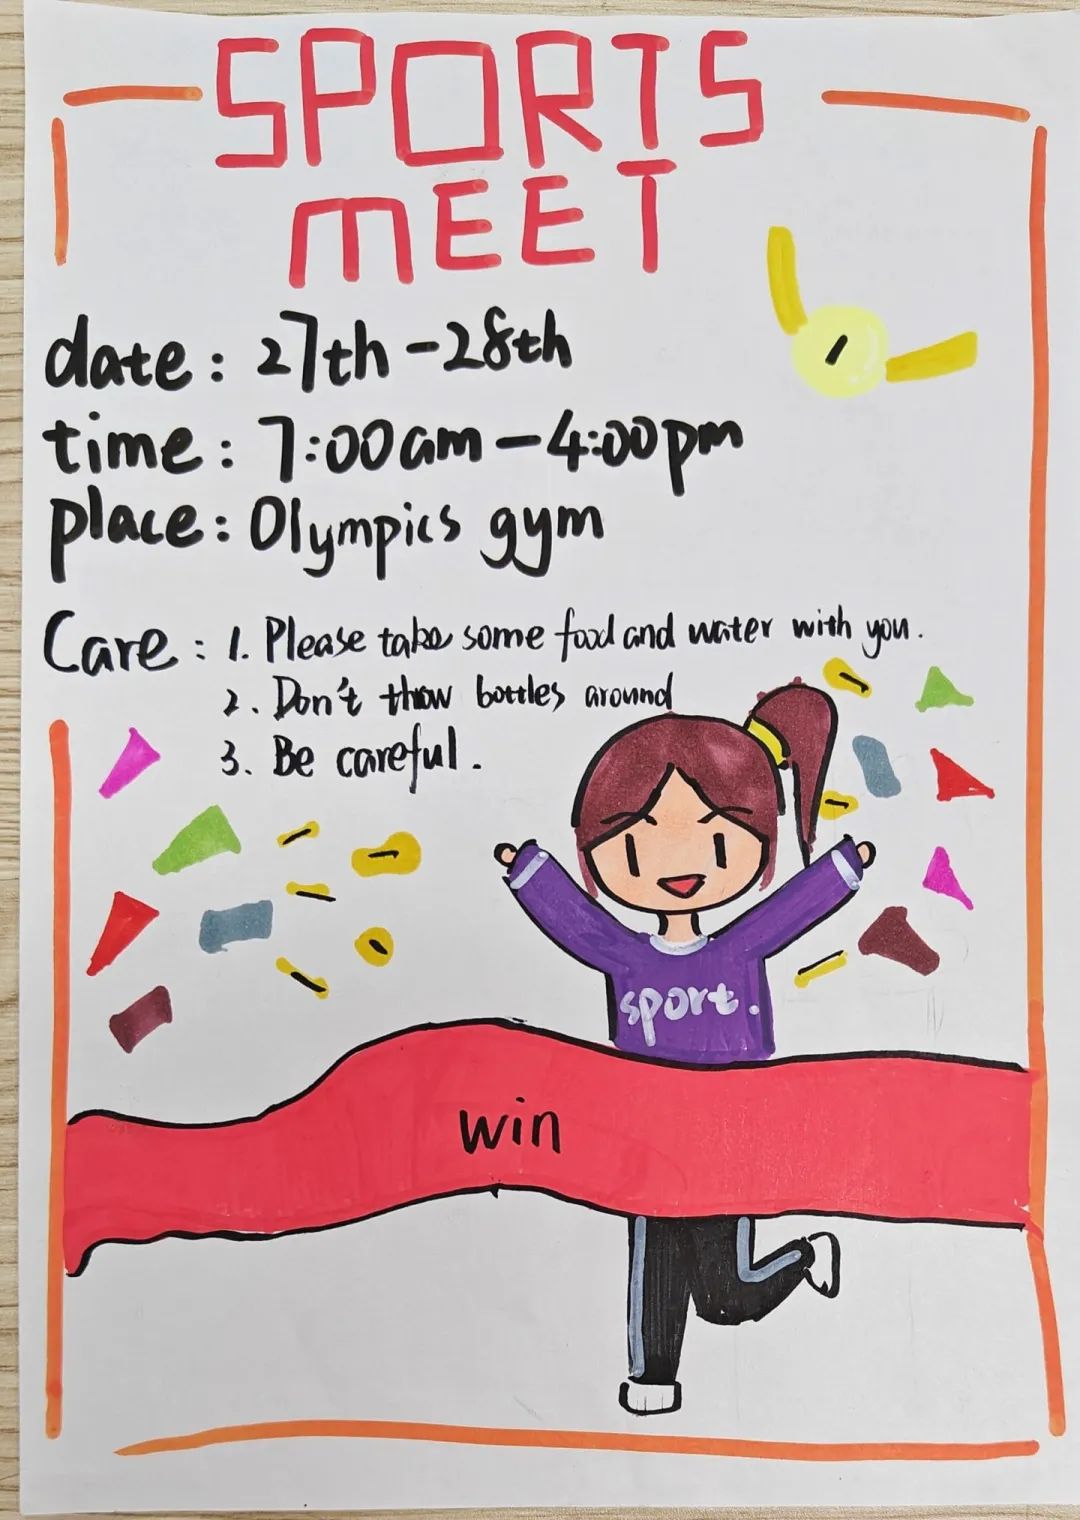 SPORTS
MEET
date: 27th-28th
time: 7:00am-4:00pm
place: Olympics gym
Care: 1. Please take some food and water with you.
2. Don't thow bottles around
3. Be careful.
sport.
win